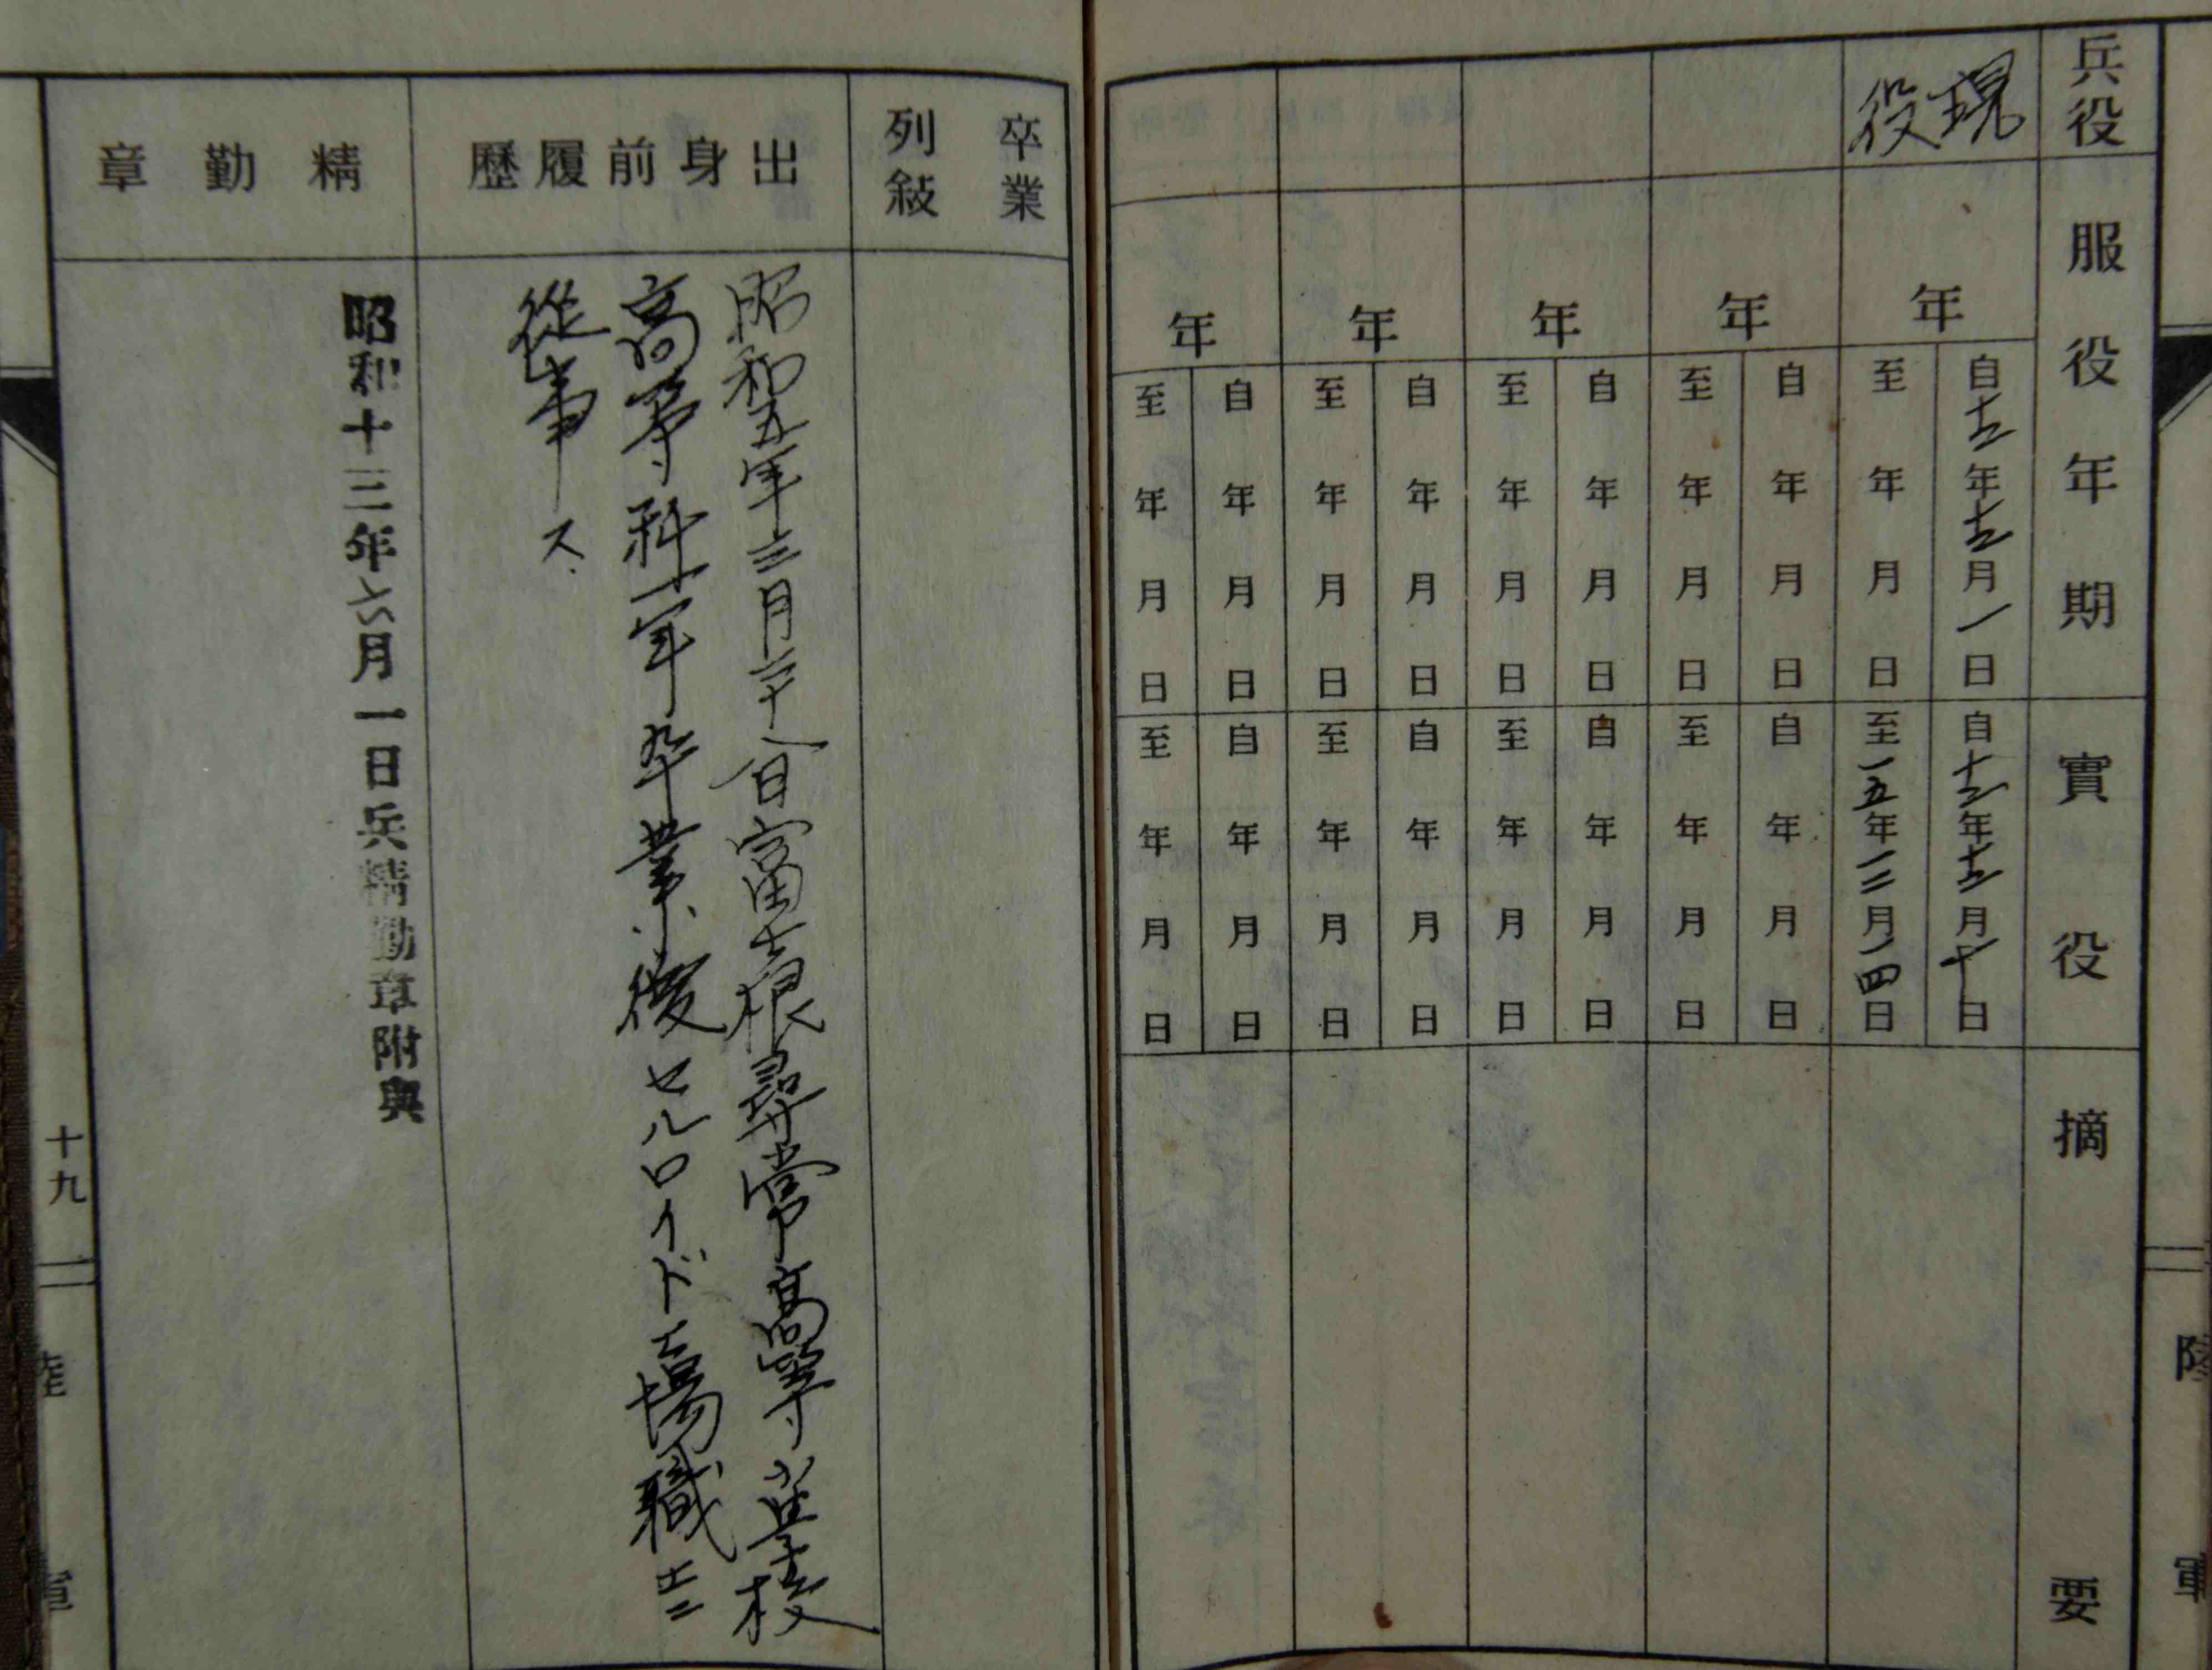 陸軍
兵役 服役年期 實役 摘要
現役
年
自十二年十二月一日
至 年 月 日
自十二年十二月十日
至一五年一二月一四日
年
自 年 月 日
至 年 月 日
自 年 月 日
至 年 月 日
年
自 年 月 日
至 年 月 日
自 年 月 日
至 年 月 日
年
自 年 月 日
至 年 月 日
自 年 月 日
至 年 月 日
年
自 年 月 日
至 年 月 日
自 年 月 日
至 年 月 日
卒業
列敍
出身前履歷
昭和五年三月二十八日富士根尋常高等小学校
高等科一年卒業後セルロイド工場職工ニ
從事ス
精勤章
昭和十三年六月一日兵精勤章附與
十九
陸軍